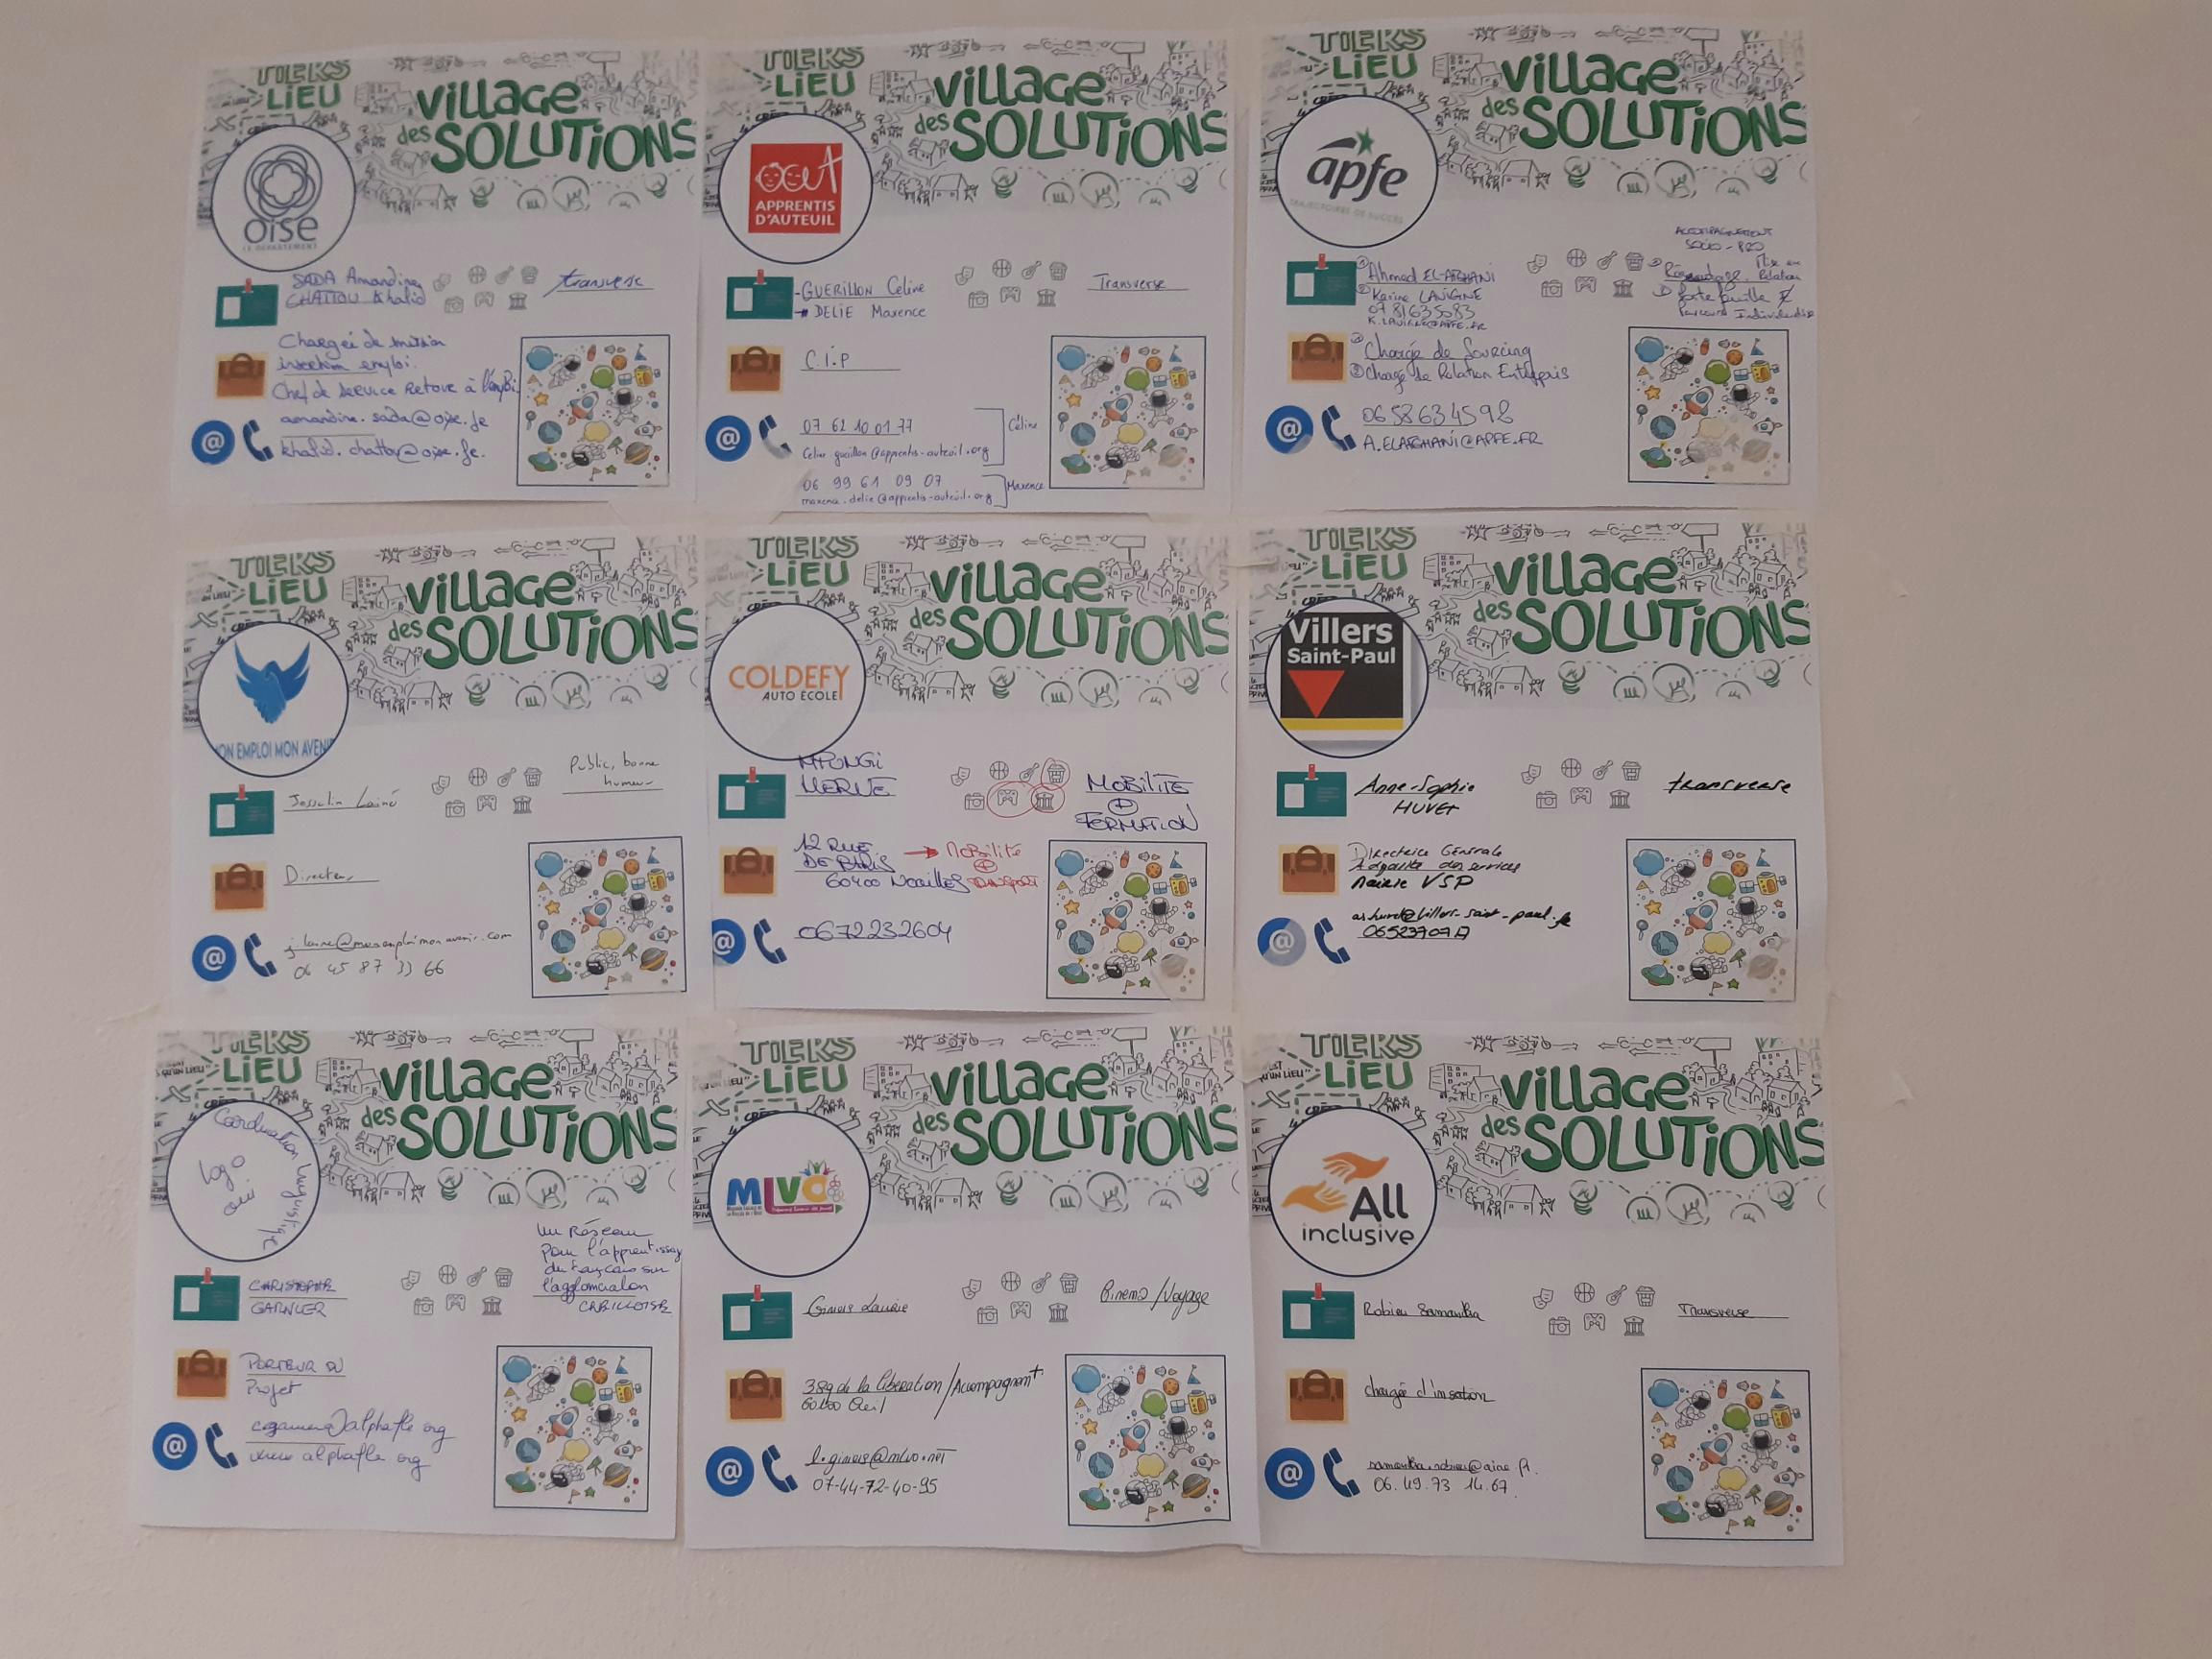 TIERS
LIEU
village
des SOLUTIONS
oise
LE DÉPARTEMENT
SADA Amandine
CHATTOU Khalid
transverse
Chargée de mission
insertion emploi.
Chef de service Retour à l'emploi
amandine.sada@oise.fr
TIERS
LIEU
village
des SOLUTIONS
APPRENTIS
D'AUTEUIL
- GUERILLON Céline
- DELIE Maxence
Transverse
C.I.P
07 62 10 01 77
Céline
celine.guerillon@apprentis-auteuil.org
06 99 61 09 07
Maxence
maxence.delie@apprentis-auteuil.org
TIERS
LIEU
village
des SOLUTIONS
apfe
TRAJECTOIRES DE SUCCÈS
ACCOMPAGNEMENT
SOCIO-PRO
① Ahmed EL-AFGHANI
② Karine LAVIGNE
0781635083
K.LAVIGNE@APFE.FR
Mise en
Relation
Parcours Individualisé
Chargé de Sourcing
② Chargé de Relation Entreprise
0658634598
A.ELAFGHANI@APFE.FR
TIERS
LIEU
village
des SOLUTIONS
MON EMPLOI MON AVENIR
Josselin Lainé
Public, bonne
humeur
Directeur
j.laine@monemploimonavenir.com
06 45 87 33 66
TIERS
LIEU
village
des SOLUTIONS
COLDEFY
AUTO ÉCOLE
MPONGI
HERVE
MOBILITE
+
FORMATION
12 RUE
DE PARIS
60400 Noailles
→ MOBILITE
+
0672232604
TIERS
LIEU
village
des SOLUTIONS
Villers
Saint-Paul
Anne-Sophie
HUVET
transverse
Directrice Générale
Adjointe des services
Mairie VSP
ashuvet@villers-saint-paul.fr
TIERS
LIEU
village
des SOLUTIONS
Coordination linguistique
logo
oui
CHRISTOPHE
GARNIER
Un Réseau
pour l'apprentissage
du français sur
l'agglomération
CREILLOISE
PORTEUR DU
Projet
www alphafle org
TIERS
LIEU
village
des SOLUTIONS
MLVO
Ginois Laurie
Cinema/Voyage
60100 Creil
l.ginois@mlvo.net
07-44-72-40-95
TIERS
LIEU
village
des SOLUTIONS
All
inclusive
Robieu Samantha
Transverse
chargée d'insertion
06.49.73 14.67.